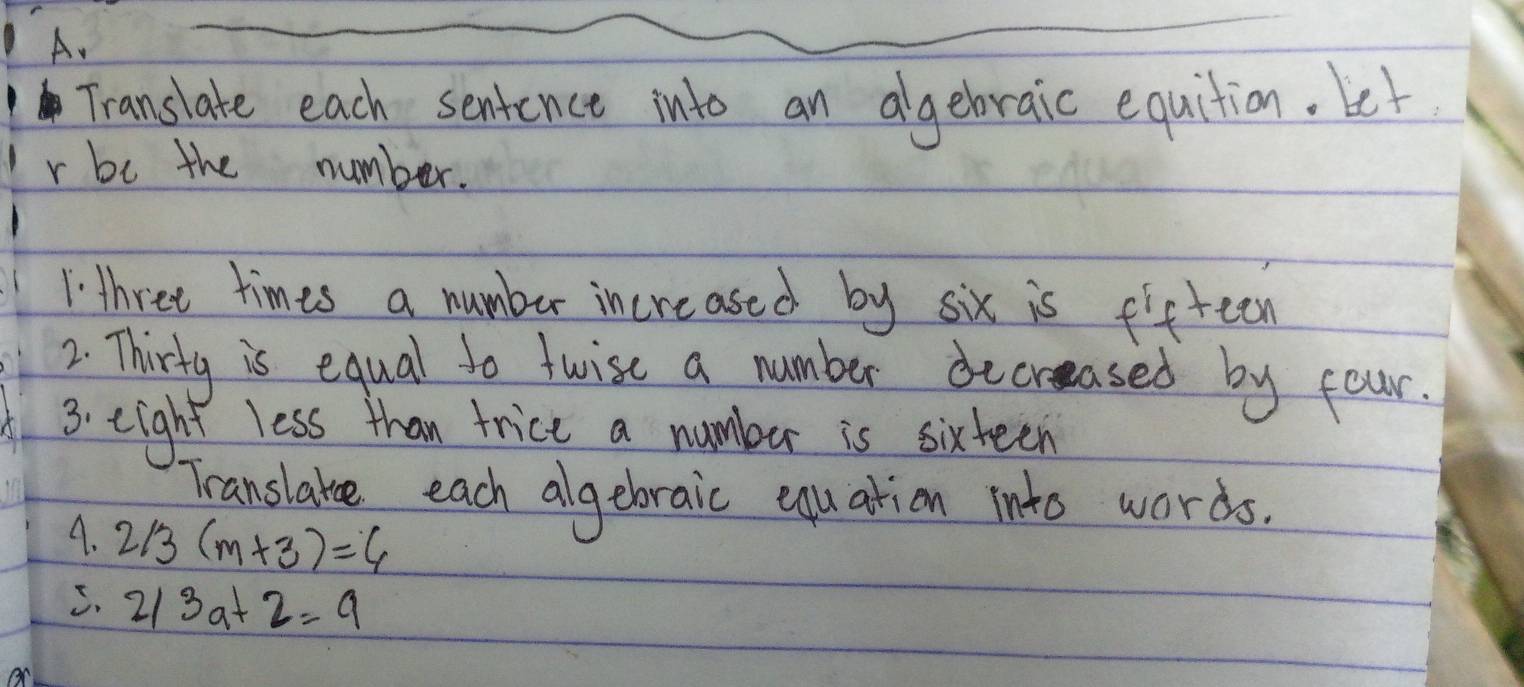 A.
Translate each sentence into an algebraic equition. Let
r be the number.
1. three times a number increased by six is fifteen
2. Thirty is equal to twise a number decreased by four.
3. eight less than trice a number is sixteen
Translate each algebraic equation into words.
4. 2/3 (m+3)=
5. 2/3a+2=9